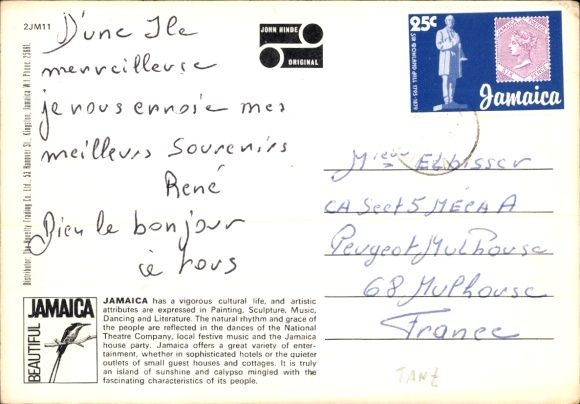 2JM11
D'une Ile
merveilleuse
je vous envoie mes
meilleurs Souvenirs
René
Bien le bonjour
à tous
JOHN HINDE
ORIGINAL
25c
SIR ROWLAND HILL 1795-1879
Jamaica
Mieur Elbisser
CA Sect 5 MÉCA A
Peugeot Mulhouse
68 Mulhouse
France
TANZ
Distributor: The Novelty Trading Co. Ltd., 53 Hanover St., Kingston, Jamaica W.I. Phone:
BEAUTIFUL
JAMAICA
JAMAICA has a vigorous cultural life, and artistic
attributes are expressed in Painting, Sculpture, Music,
Dancing and Literature. The natural rhythm and grace of
the people are reflected in the dances of the National
Theatre Company, local festive music and the Jamaica
house party. Jamaica offers a great variety of enter-
tainment, whether in sophisticated hotels or the quieter
outlets of small guest houses and cottages. It is truly
an island of sunshine and calypso mingled with the
fascinating characteristics of its people.